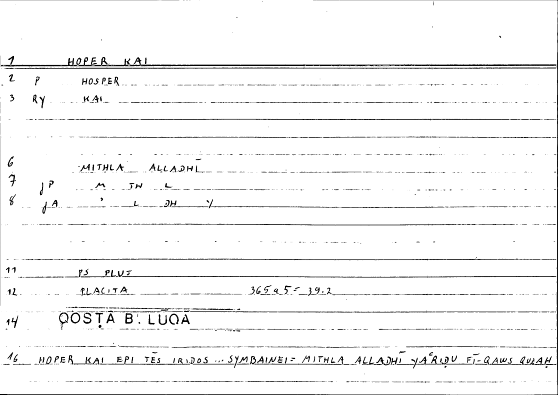 1 HOPER KAI
2 P HOSPER
3 RY KAI
6 MITHLA ALLADHĪ
7 JP M TH L
8 JA ' L DH Y
11 PS PLUT
12 PLACITA 365a5 = 39.2
14 QOSṬĀ B. LUQA
16 HOPER KAI EPI TĒS IRIDOS ... SYMBAINEI = MITHLA ALLADHĪ YAʿRIḌU FĪ-QAWS QUZAḤ